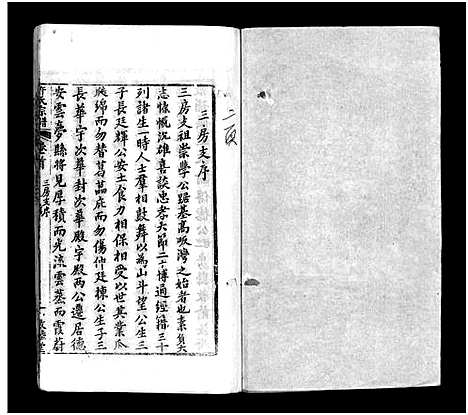 三房支序
三房支祖崇學公踞基高畈灣之始者也素負大
志慷慨沉雄喜談忠孝大節二十博通經籍三十
列諸生一時人士羣相鼓舞以為山斗望公生三
子長廷輝公安土食力相保相受以世其業瓜
瓞綿而勿替葛藟庇而勿傷仲廷棟公生子三
長華宇次華封次華殿宇殿兩公遷居德
安雲夢縣將見厚積而光流雲蒸而霞蔚
宗譜
卷首
三房支序
敦睦堂